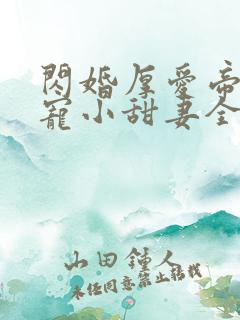 閃婚厚愛帝
寵小甜妻全
山田鍾人
未经同意禁止转载